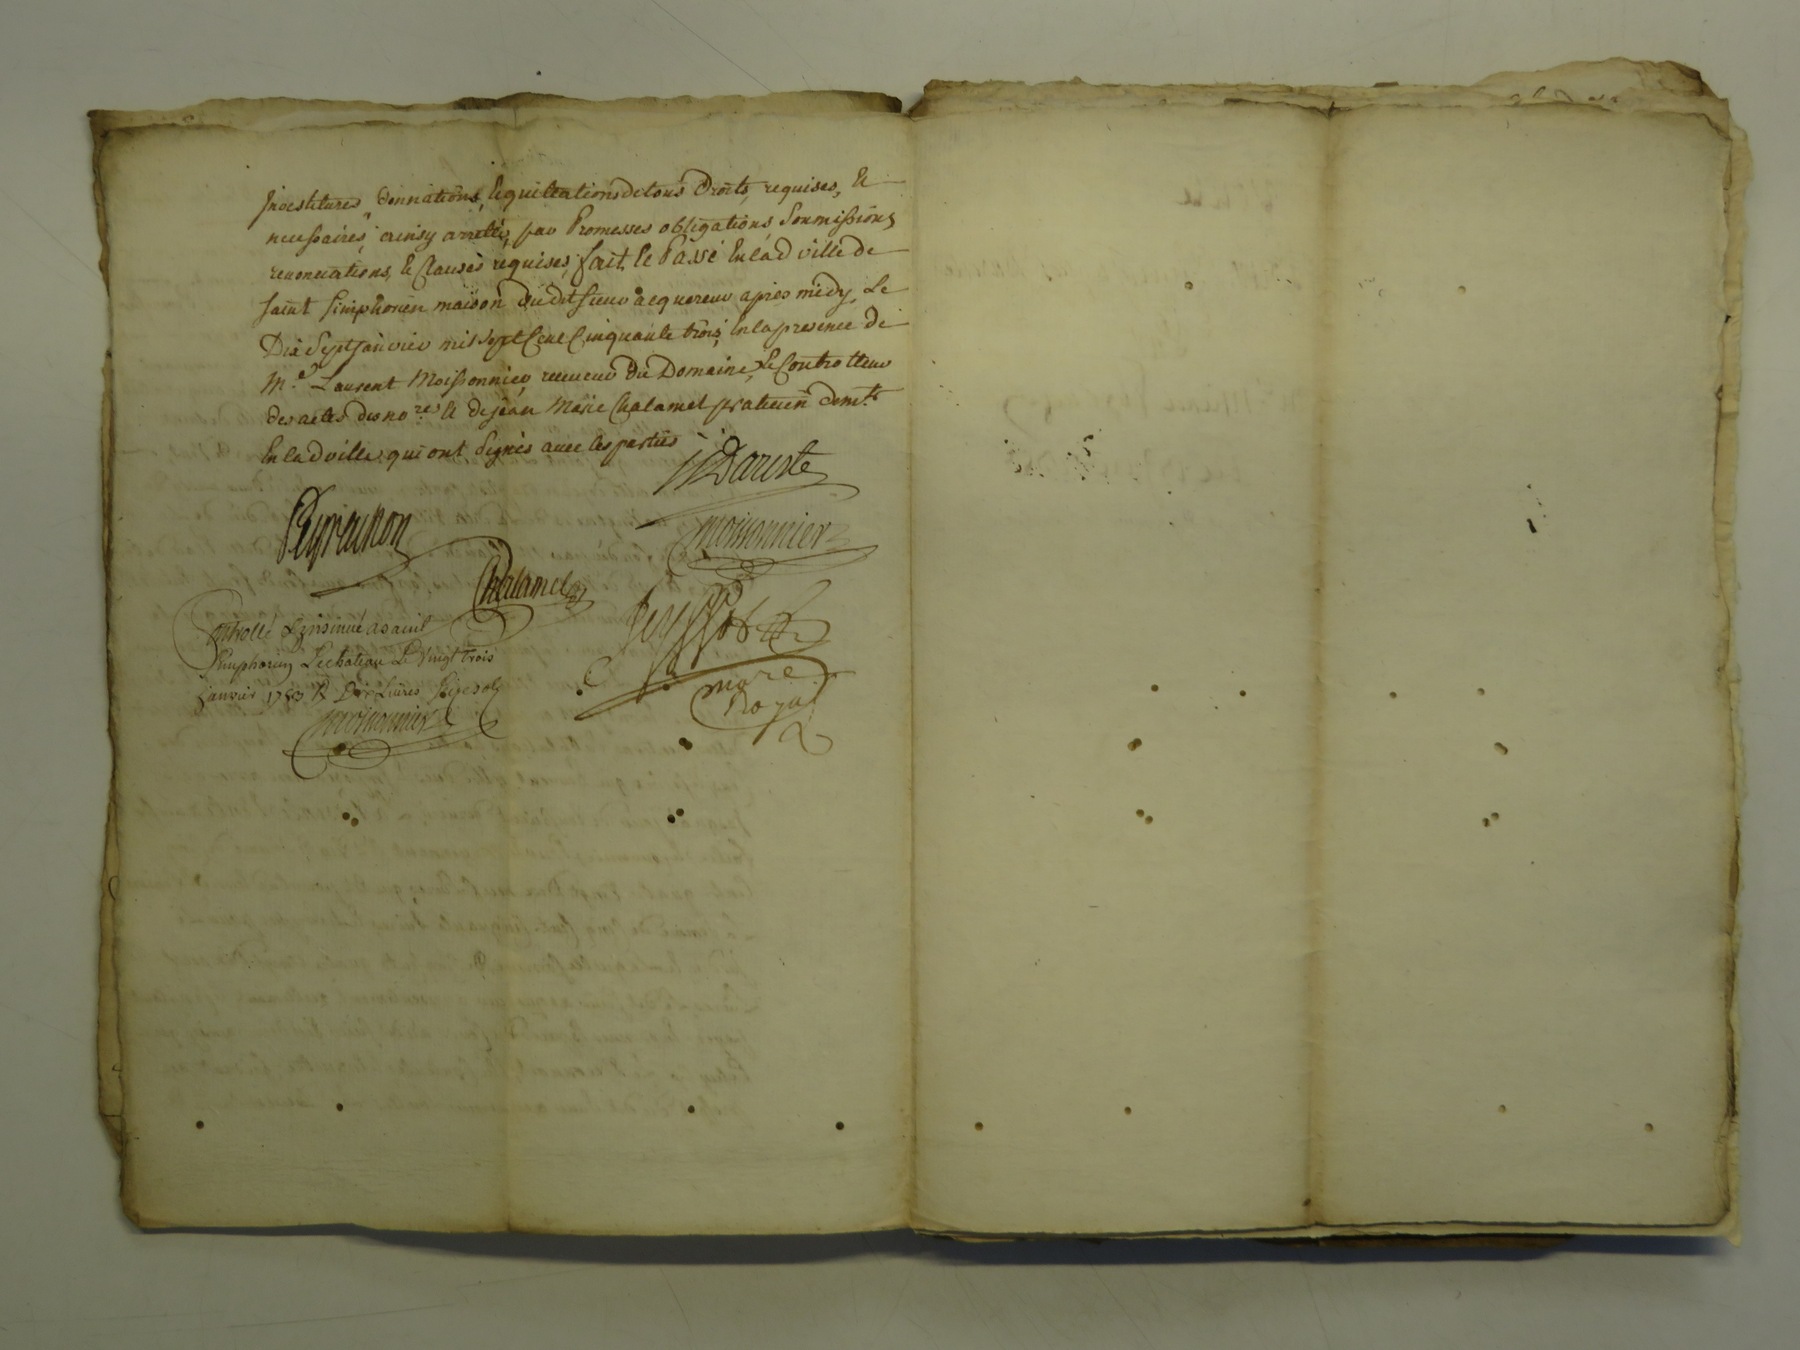 Investitures, donnations, & quittations de tous droits, requises, &
necessaires, ainsy arretté, par Promesses obligations, soumissions,
renonciations, & Clauses requises, fait & Passé En lad ville de
saint simphorien maison dudit sieur acquereur apres midy, Le
Dix sept janvier mil sept Cent Cinquante trois, En la presence de
M.e Laurent Moissonnier, receveur du Domaine, & Controlleur
des actes des no.res & de jean Marie Chalamel praticien demt.
En lad ville, qui ont signés avec les parties
Dareste
Peyrachon
moissonnier
Chalamel
Controllé & insinué a saint
simphorien Le chateau Le vingt trois
janvier 1753 R Dix Livres
moissonnier
no.re
Royal